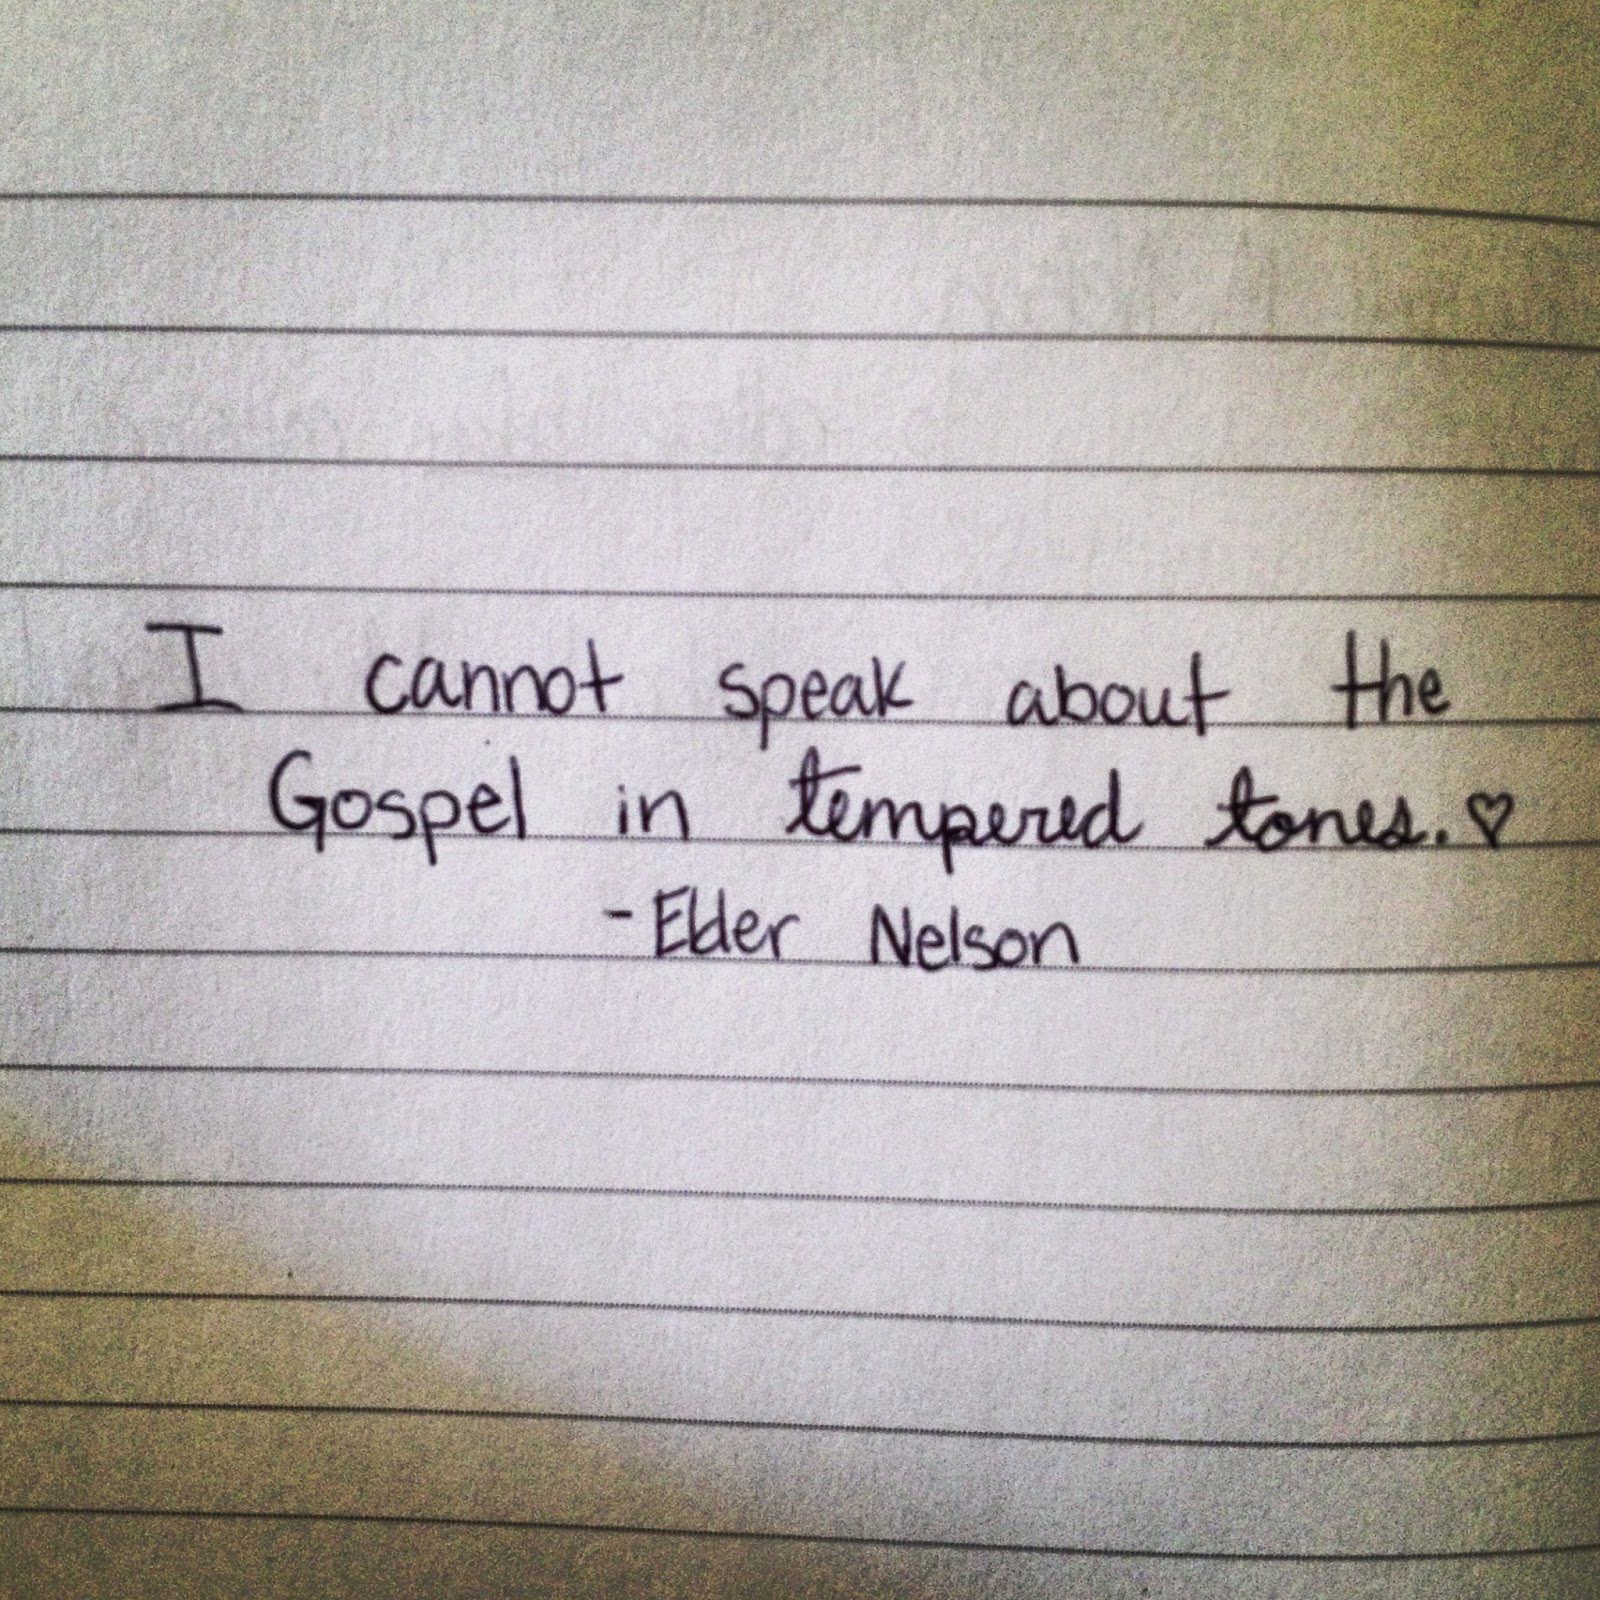 I cannot speak about the
Gospel in tempered tones. ♡
- Elder Nelson